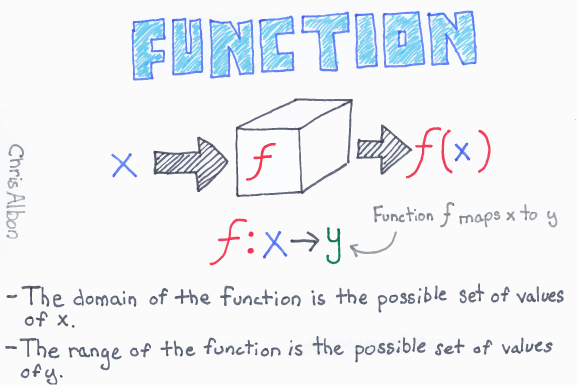 FUNCTION
x f f(x)
f: x → y
Function f maps x to y
Chris Albon
- The domain of the function is the possible set of values
of x.
- The range of the function is the possible set of values
of y.